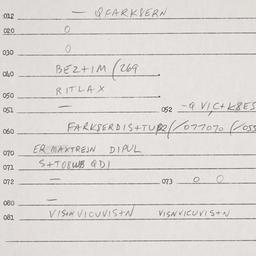 012 — QFARK8ERN
020 O
030 O
040 BEZ+IM (269
050 RITLAX
051 — 052 -9 VIC+K8ES
060 FARK8ERDIS+TUR2(/077070 (/055
070 ER MAXTREJN DIPUL
071 S+TO8WB GDI
072 — 073 O O
080 —
081 VISHVICUVIS+N VISNVICUVIS+N